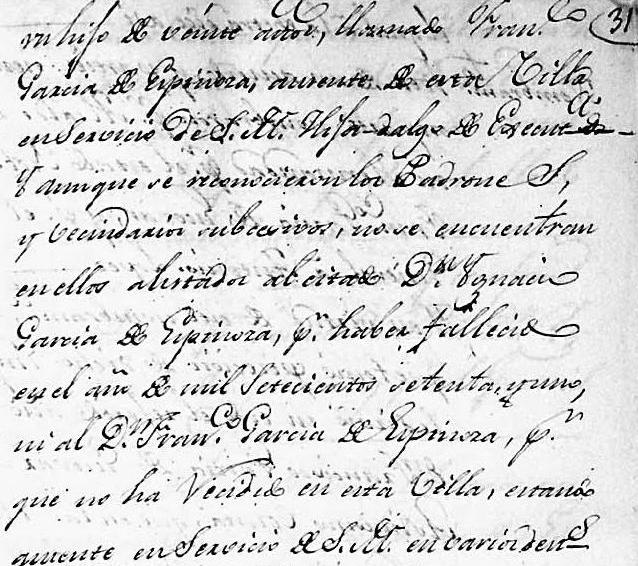 un hijo de veinte años, llamado Fran.co 31
Garcia de Espinosa, ausente de esta Villa
en Servicio de S. M. Hijo-dalgo de Executa.
Y aunque se reconocieron los Padrone S,
y vecindarios subcesivos, no se encuentran
en ellos alistados al citado D.n Ygnacio
Garcia de Espinosa, p.r haber fallecido
en el año de mil Setecientos setenta, y uno,
ni al D.n Fran.co Garcia de Espinosa, p.r
que no ha Vecido en esta Villa, estando
ausente en Servicio de S. M. en varios den S